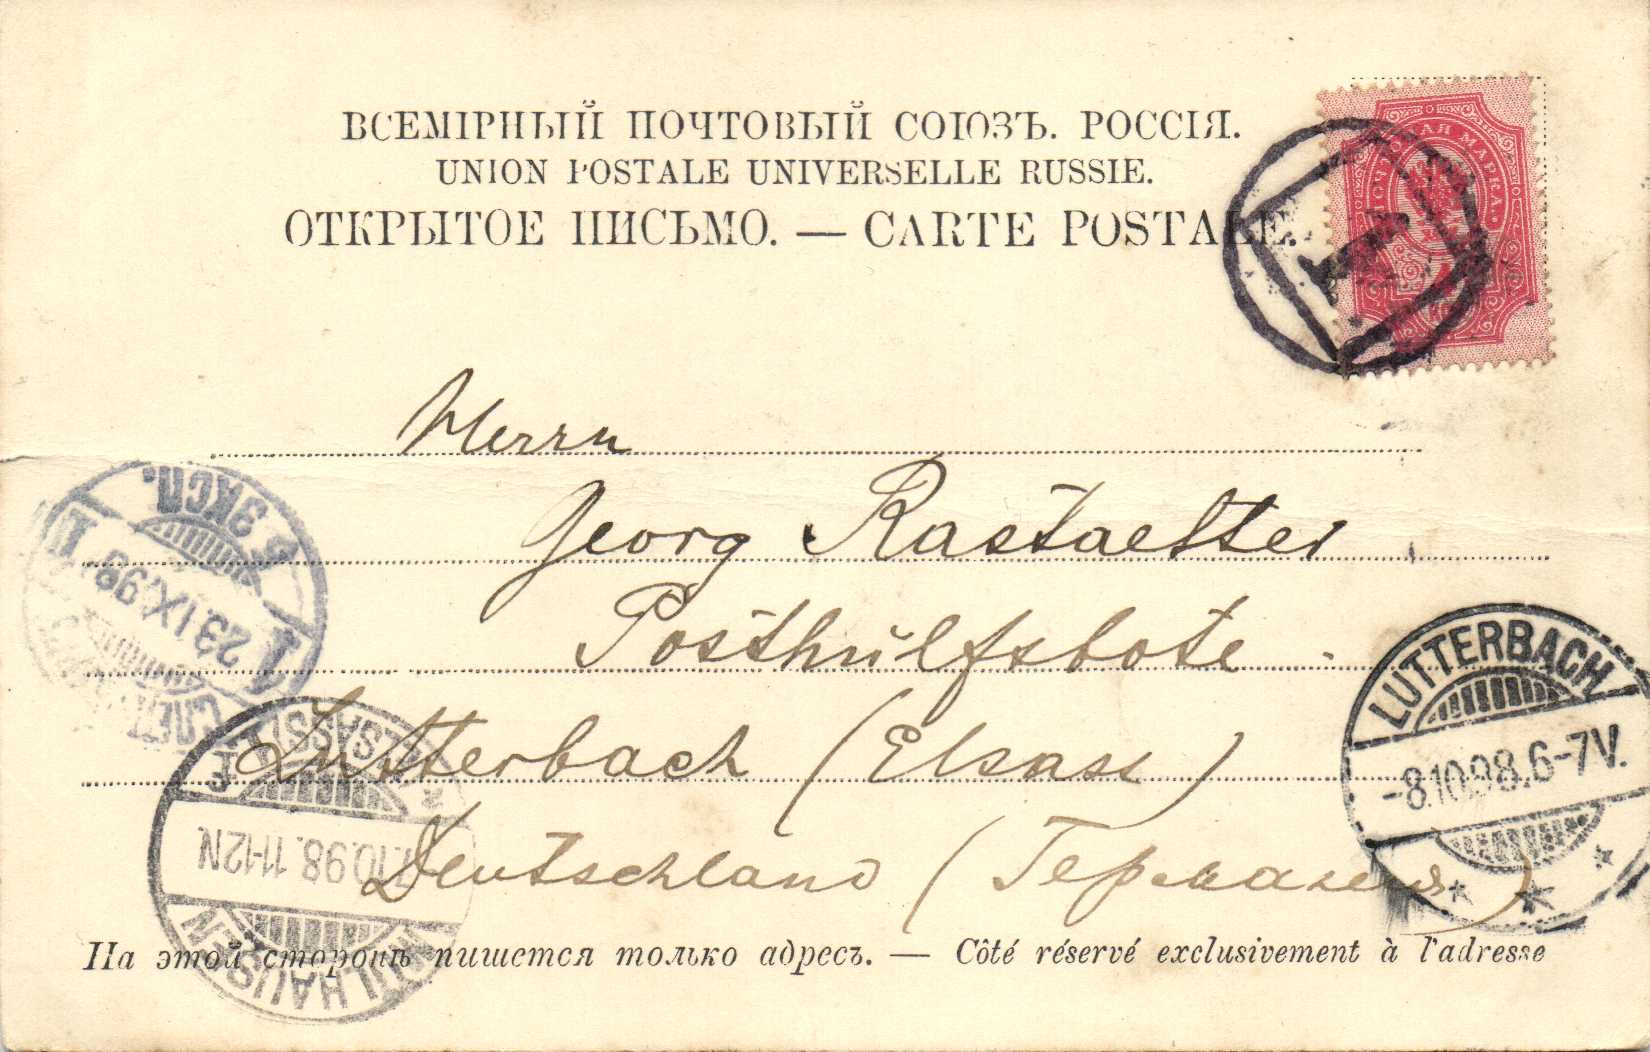 ВСЕМІРНЫЙ ПОЧТОВЫЙ СОЮЗЪ. РОССІЯ.
UNION POSTALE UNIVERSELLE RUSSIE.
ОТКРЫТОЕ ПИСЬМО. — CARTE POSTALE.
ПОЧТОВАЯ МАРКА
1
Herrn
Georg Rastaetter
Posthülfsbote
Lutterbach (Elsass)
Deutschland (Германія)
ЭКСП.
23 IX 98
1
LUTTERBACH
-8.10.98.6-7V.
* * *
MÜLHAUSEN
7.10.98.11-12N
(ELSASS)
На этой сторонѣ пишется только адресъ. — Côté réservé exclusivement à l'adresse